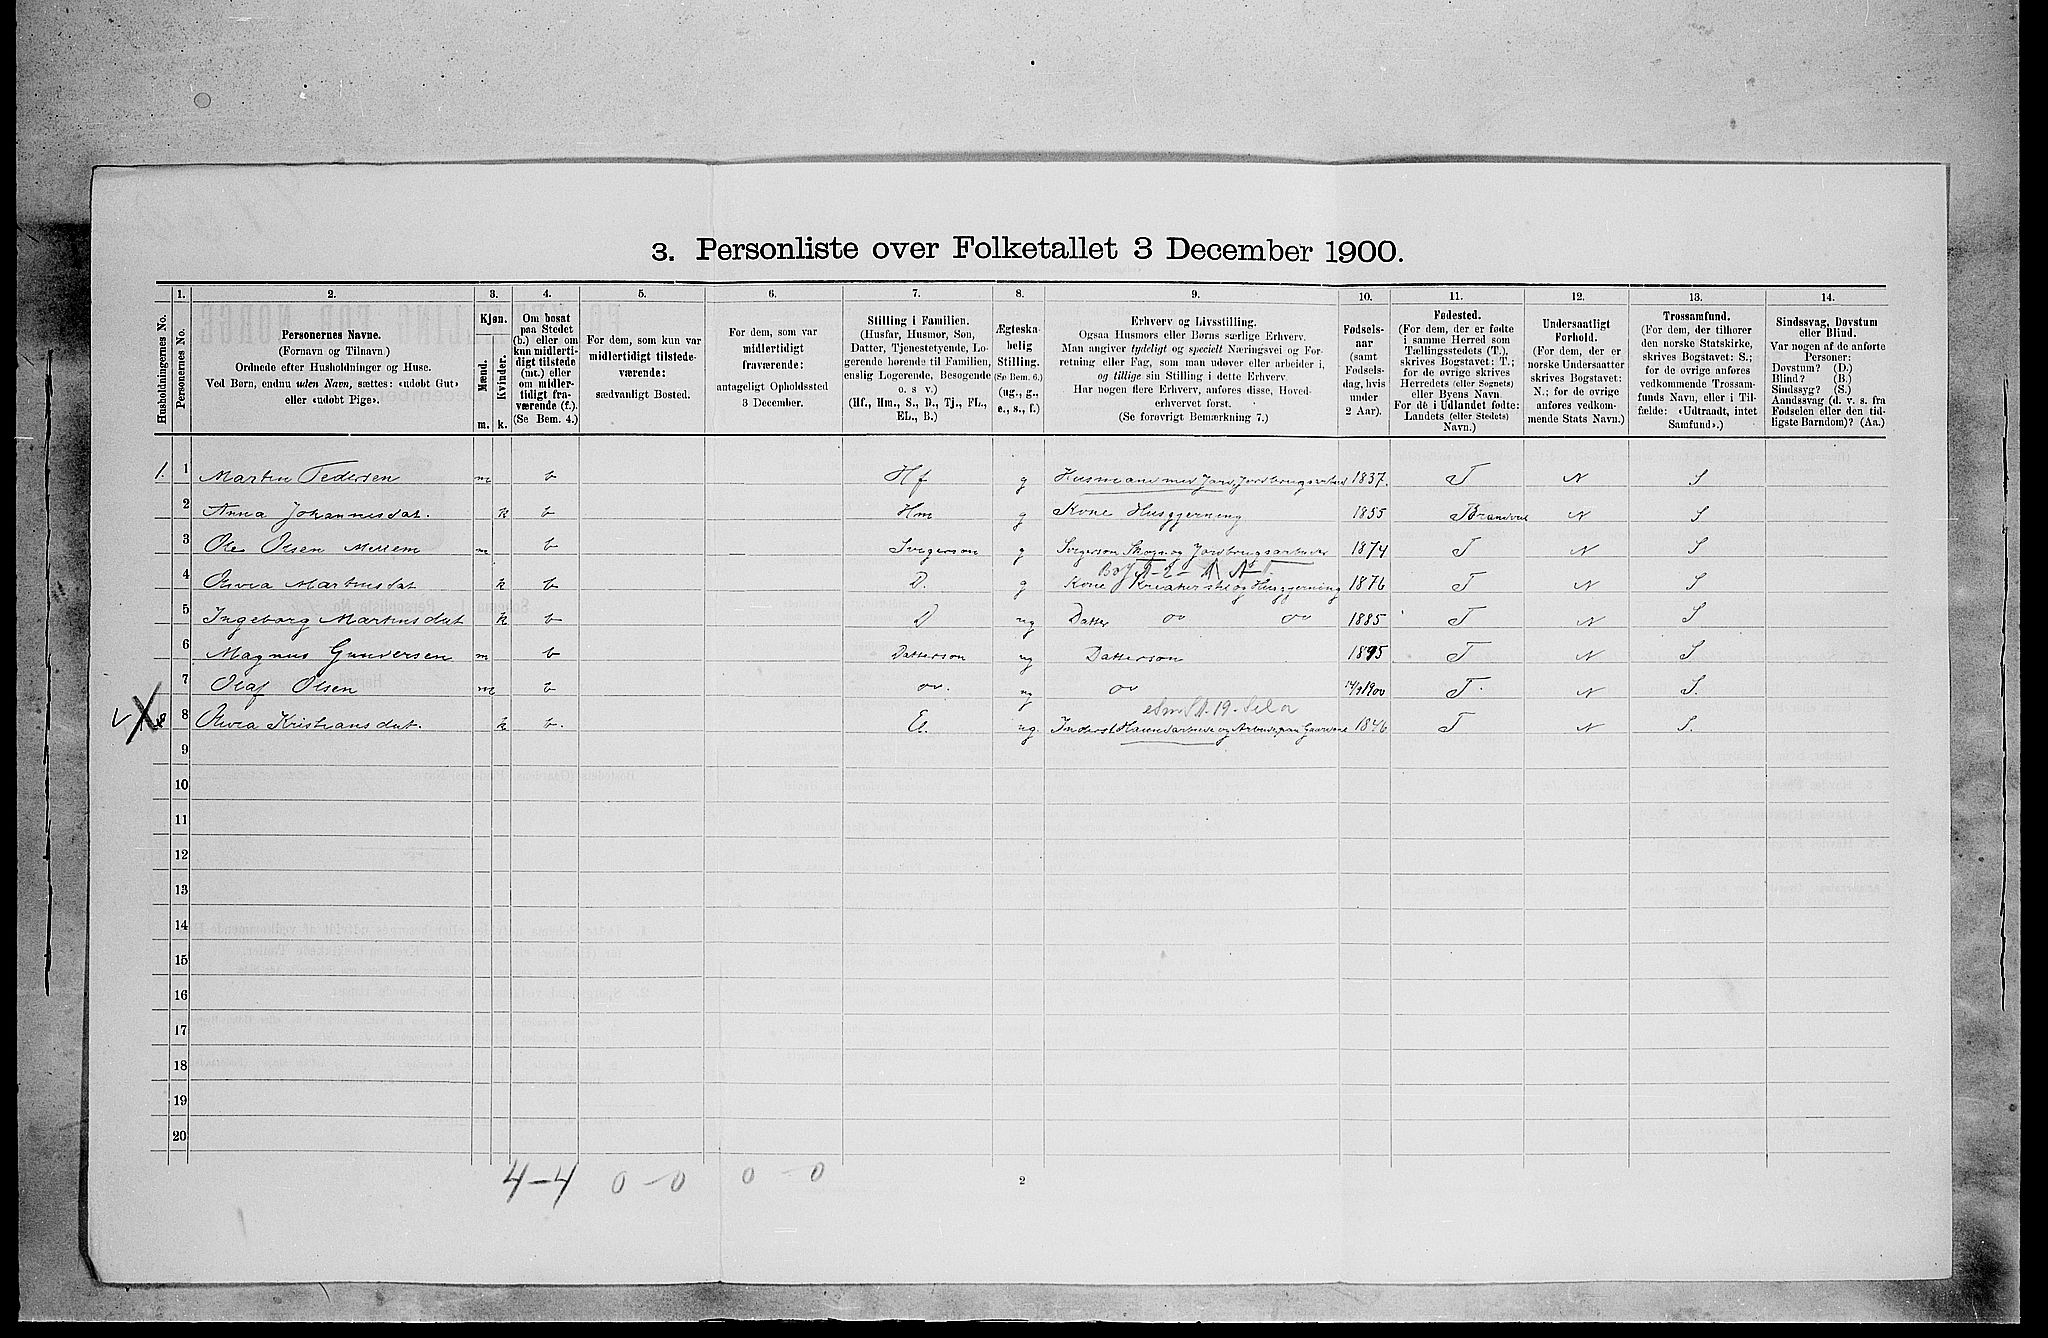 3. Personliste over Folketallet 3 December 1900.
Husholdningernes No.
1.
Personernes No.
2.
Personernes Navne.
(Fornavn og Tilnavn.)
Ordnede efter Husholdninger og Huse.
Ved Børn, endnu uden Navn, sættes: «udøbt Gut»
eller «udøbt Pige».
3.
Kjøn.
Mænd.
Kvinder.
m.
k.
4.
Om bosat
paa Stedet
(b.) eller om
kun midlerti-
digt tilstede
(mt.) eller
om midler-
tidigt fra-
værende (f.).
(Se Bem. 4.)
5.
For dem, som kun var
midlertidigt tilstede-
værende:
sædvanligt Bosted.
6.
For dem, som var
midlertidigt
fraværende:
antageligt Opholdssted
3 December.
7.
Stilling i Familien.
(Husfar, Husmor, Søn,
Datter, Tjenestetyende, Lo-
gerende hørende til Familien,
enslig Logerende, Besøgende
o. s v.)
(Hf., Hm., S., D., Tj., FL.,
EL., B.)
8.
Ægteska-
belig
Stilling.
(Se Bem. 6.)
(ug., g.,
e., s., f.)
9.
Erhverv og Livsstilling.
Ogsaa Husmors eller Børns særlige Erhverv.
Man angiver tydeligt og specielt Næringsvei og For-
retning eller Fag, som man udøver eller arbeider i,
og tillige sin Stilling i dette Erhverv.
Har nogen flere Erhverv, anføres disse, Hoved-
erhvervet først.
(Se forøvrigt Bemærkning 7.)
10.
Fødsels-
aar
(samt
Fødsels-
dag, hvis
under
2 Aar).
11.
Fødested.
(For dem, der er fødte
i samme Herred som
Tællingsstedets (T.),
skrives Bogstavet: T.;
for de øvrige skrives
Herredets (eller Sognets)
eller Byens Navn.
For de i Udlandet fødte:
Landets (eller Stedets)
Navn.)
12.
Undersaatligt
Forhold.
(For dem, der er
norske Undersaatter
skrives Bogstavet:
N.; for de øvrige
anføres vedkom-
mende Stats Navn.)
13.
Trossamfund.
(For dem, der tilhører
den norske Statskirke,
skrives Bogstavet: S.;
for de øvrige anføres
vedkommende Trossam-
funds Navn, eller i Til-
fælde: «Udtraadt, intet
Samfund».)
14.
Sindssvag, Døvstum
eller Blind.
Var nogen af de anførte
Personer:
Døvstum? (D.)
Blind? (B.)
Sindssyg? (S.)
Aandssvag (d. v. s. fra
Fødselen eller den tid-
ligste Barndom)? (Aa.)
1. 1 Martin Pedersen m b Hf g Husmand med Jord, Jordbrugsarbeid 1837. T N S
2 Anna Johannesdat. k b Hm g Kone Husgjerning 1855 Brandval N S
3 Ole Olsen m b Svigersøn g Svigersøn Skogs og Jordbrugsarbeider 1874 T N S
4 Olivia Martinsdat k b D. g Kone Kreaturstel og Husgjerning 1876 T N S
5 Ingeborg Martinsdat k b D ug Datter " " 1885 T N S
6 Magnus Gundersen m b Dattersøn ug Dattersøn 1895 T N S
7 Olaf Olsen m b " ug " 1900 T. N S.
8 Olivia Kristiansdat. k b. El. ug. Inderst Haandarbeide og Arbeide paa Gaardene 1846 T N S.
9
10
11
12
13
14
15
16
17
18
19
20
4–4 0–0 0–0
2